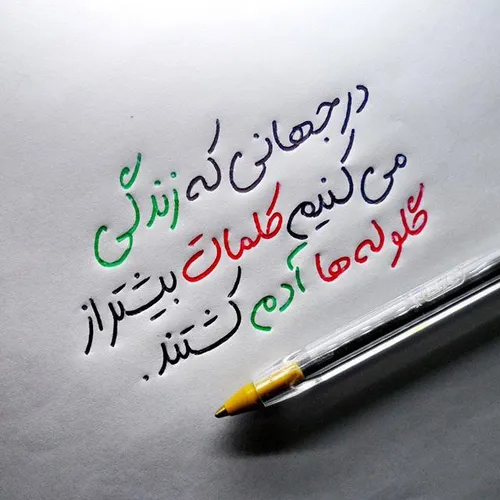 در جهانی که زندگی
می کنیم کلمات بیشتر از
گلوله ها آدم کشتند.